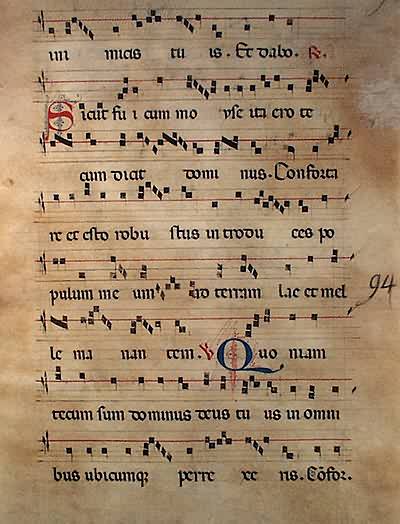 mi micis tu is. Et dabo. R.
Sicut fu i cum mo yse ita ero te
cum dicit domi nus. Conforta
re et esto robu stus introdu ces po
pulum me um ad terram lac et mel
94
le ma nan tem. V Quo niam
tecum sum dominus deus tu us in omni
bus ubicumq perre xe ris. Cōfor.